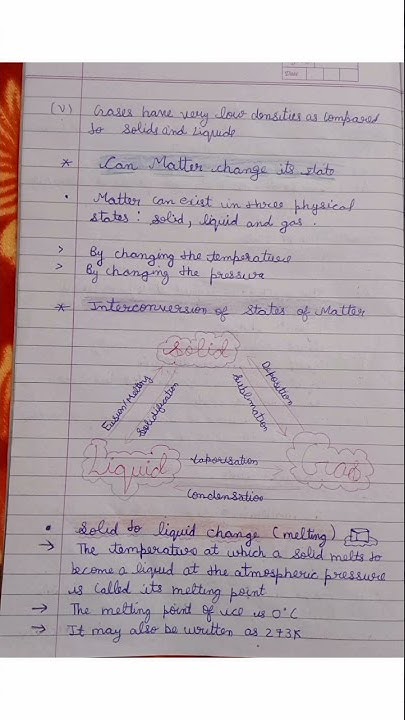 Date
(V) Gases have very low densities as compared
to solids and liquids
* Can Matter change its state
• Matter can exist in three physical
states : solid, liquid and gas .
> By changing the temperature
> By changing the pressure
* Interconversion of States of Matter
Solid
Fusion/Melting
Solidification
Sublimation
Deposition
Liquid
Vaporisation
Gas
Condensation
• Solid to liquid change (melting)
→ The temperature at which a solid melts to
become a liquid at the atmospheric pressure
is called its melting point
→ The melting point of ice is 0°C
→ It may also be written as 273K